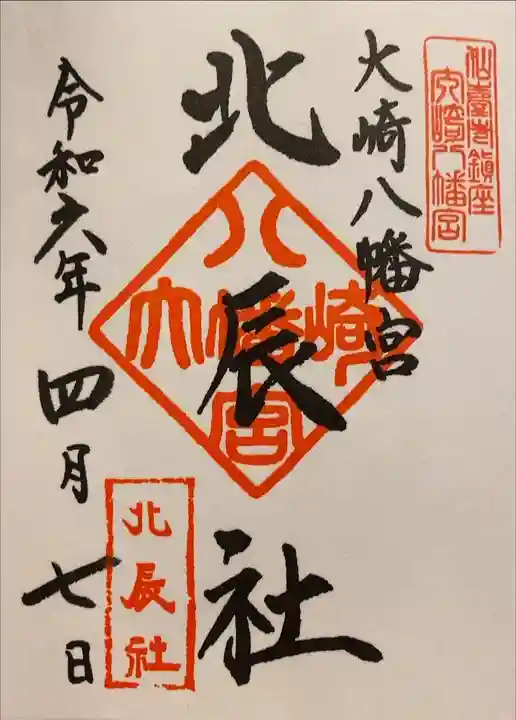 仙臺市鎮座
大崎八幡宮
大崎八幡宮
北辰社
八
大幡崎
宮
北辰社
令和六年四月七日